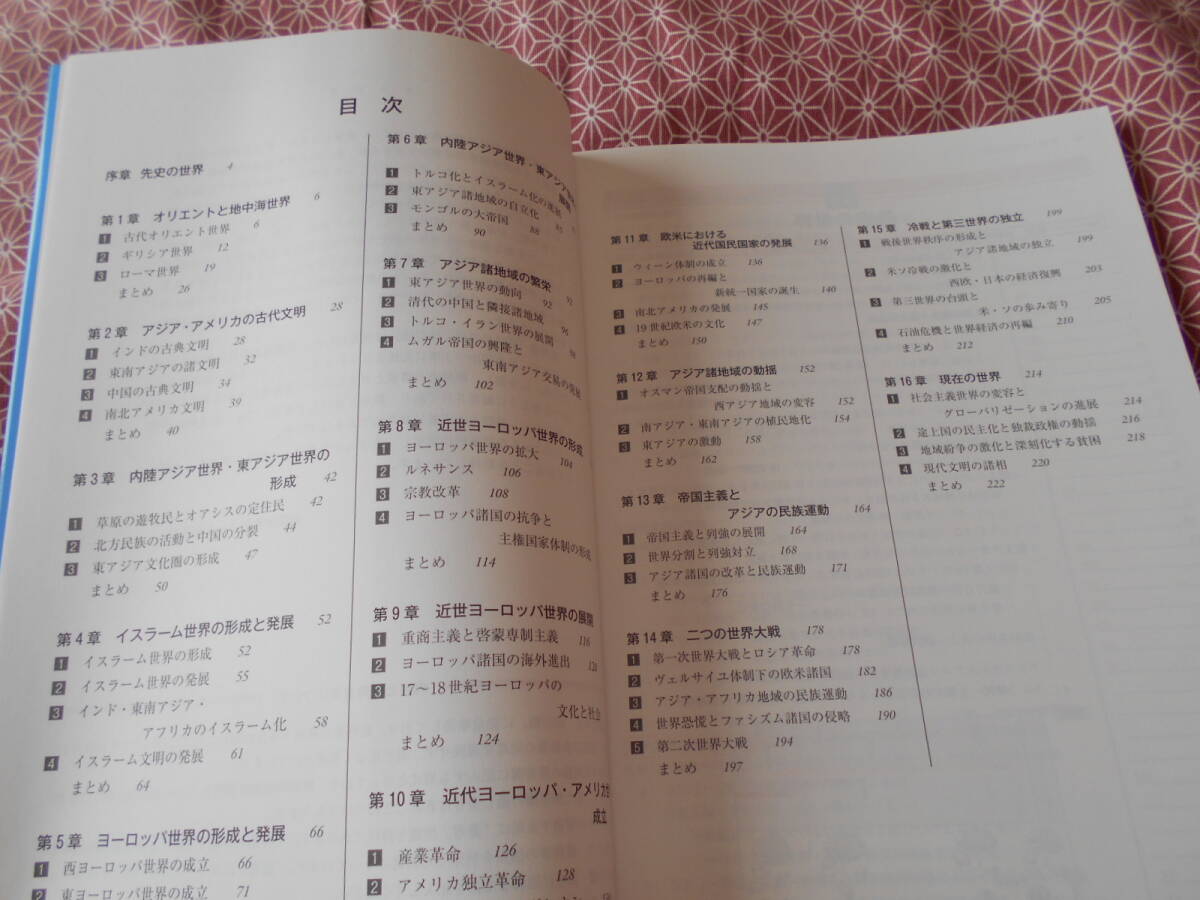 目 次
序章 先史の世界 4
第1章 オリエントと地中海世界 6
1 古代オリエント世界 6
2 ギリシア世界 12
3 ローマ世界 19
まとめ 26
第2章 アジア・アメリカの古代文明 28
1 インドの古典文明 28
2 東南アジアの諸文明 32
3 中国の古典文明 34
4 南北アメリカ文明 39
まとめ 40
第3章 内陸アジア世界・東アジア世界の
形成 42
1 草原の遊牧民とオアシスの定住民 42
2 北方民族の活動と中国の分裂 44
3 東アジア文化圏の形成 47
まとめ 50
第4章 イスラーム世界の形成と発展 52
1 イスラーム世界の形成 52
2 イスラーム世界の発展 55
3 インド・東南アジア・
アフリカのイスラーム化 58
4 イスラーム文明の発展 61
まとめ 64
第5章 ヨーロッパ世界の形成と発展 66
1 西ヨーロッパ世界の成立 66
2 東ヨーロッパ世界の成立 71
第6章 内陸アジア世界・東アジア世界の
展開
1 トルコ化とイスラーム化の進展
2 東アジア諸地域の自立化 85
3 モンゴルの大帝国 88
まとめ 90
第7章 アジア諸地域の繁栄 92
1 東アジア世界の動向 92
2 清代の中国と隣接諸地域 96
3 トルコ・イラン世界の展開 98
4 ムガル帝国の興隆と
東南アジア交易の発展
まとめ 102
第8章 近世ヨーロッパ世界の形成
1 ヨーロッパ世界の拡大 104
2 ルネサンス 106
3 宗教改革 108
4 ヨーロッパ諸国の抗争と
主権国家体制の形成
まとめ 114
第9章 近世ヨーロッパ世界の展開
1 重商主義と啓蒙専制主義 116
2 ヨーロッパ諸国の海外進出 120
3 17〜18世紀ヨーロッパの
文化と社会
まとめ 124
第10章 近代ヨーロッパ・アメリカ世
成立
1 産業革命 126
2 アメリカ独立革命 128
第11章 欧米における
近代国民国家の発展 136
1 ウィーン体制の成立 136
2 ヨーロッパの再編と
新統一国家の誕生 140
3 南北アメリカの発展 145
4 19世紀欧米の文化 147
まとめ 150
第12章 アジア諸地域の動揺 152
1 オスマン帝国支配の動揺と
西アジア地域の変容 152
2 南アジア・東南アジアの植民地化 154
3 東アジアの激動 158
まとめ 162
第13章 帝国主義と
アジアの民族運動 164
1 帝国主義と列強の展開 164
2 世界分割と列強対立 168
3 アジア諸国の改革と民族運動 171
まとめ 176
第14章 二つの世界大戦 178
1 第一次世界大戦とロシア革命 178
2 ヴェルサイユ体制下の欧米諸国 182
3 アジア・アフリカ地域の民族運動 186
4 世界恐慌とファシズム諸国の侵略 190
5 第二次世界大戦 194
まとめ 197
第15章 冷戦と第三世界の独立 199
1 戦後世界秩序の形成と
アジア諸地域の独立 199
2 米ソ冷戦の激化と
西欧・日本の経済復興 203
3 第三世界の台頭と
米・ソの歩み寄り 205
4 石油危機と世界経済の再編 210
まとめ 212
第16章 現在の世界 214
1 社会主義世界の変容と
グローバリゼーションの進展 214
2 途上国の民主化と独裁政権の動揺 216
3 地域紛争の激化と深刻化する貧困 218
4 現代文明の諸相 220
まとめ 222